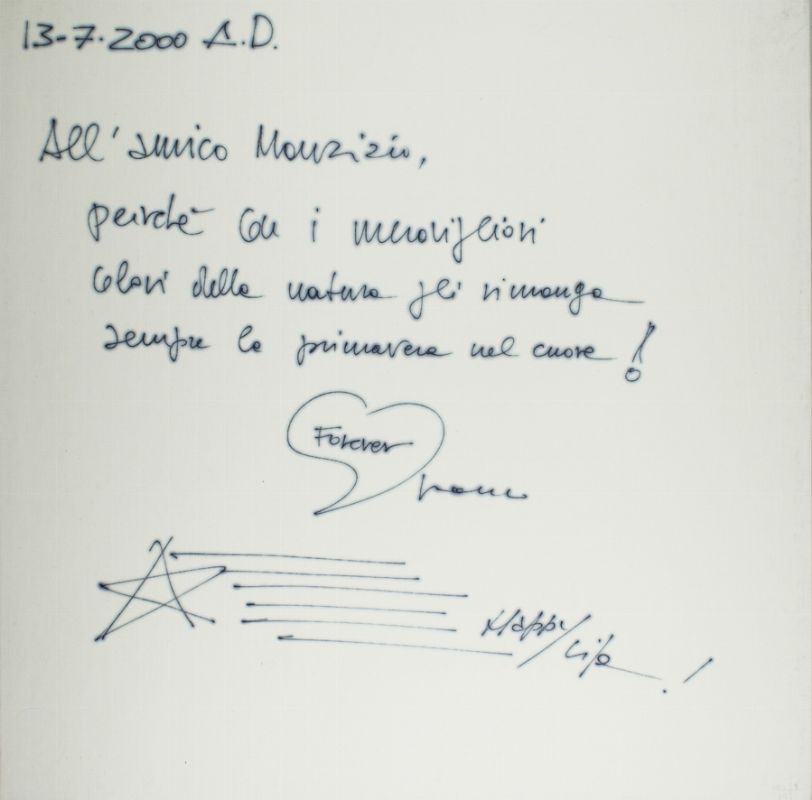 13-7-2000 A.D.
All'amico Maurizio,
perchè con i meravigliosi
colori della natura gli rimanga
sempre la primavera nel cuore!
Forever
Happy
Life!